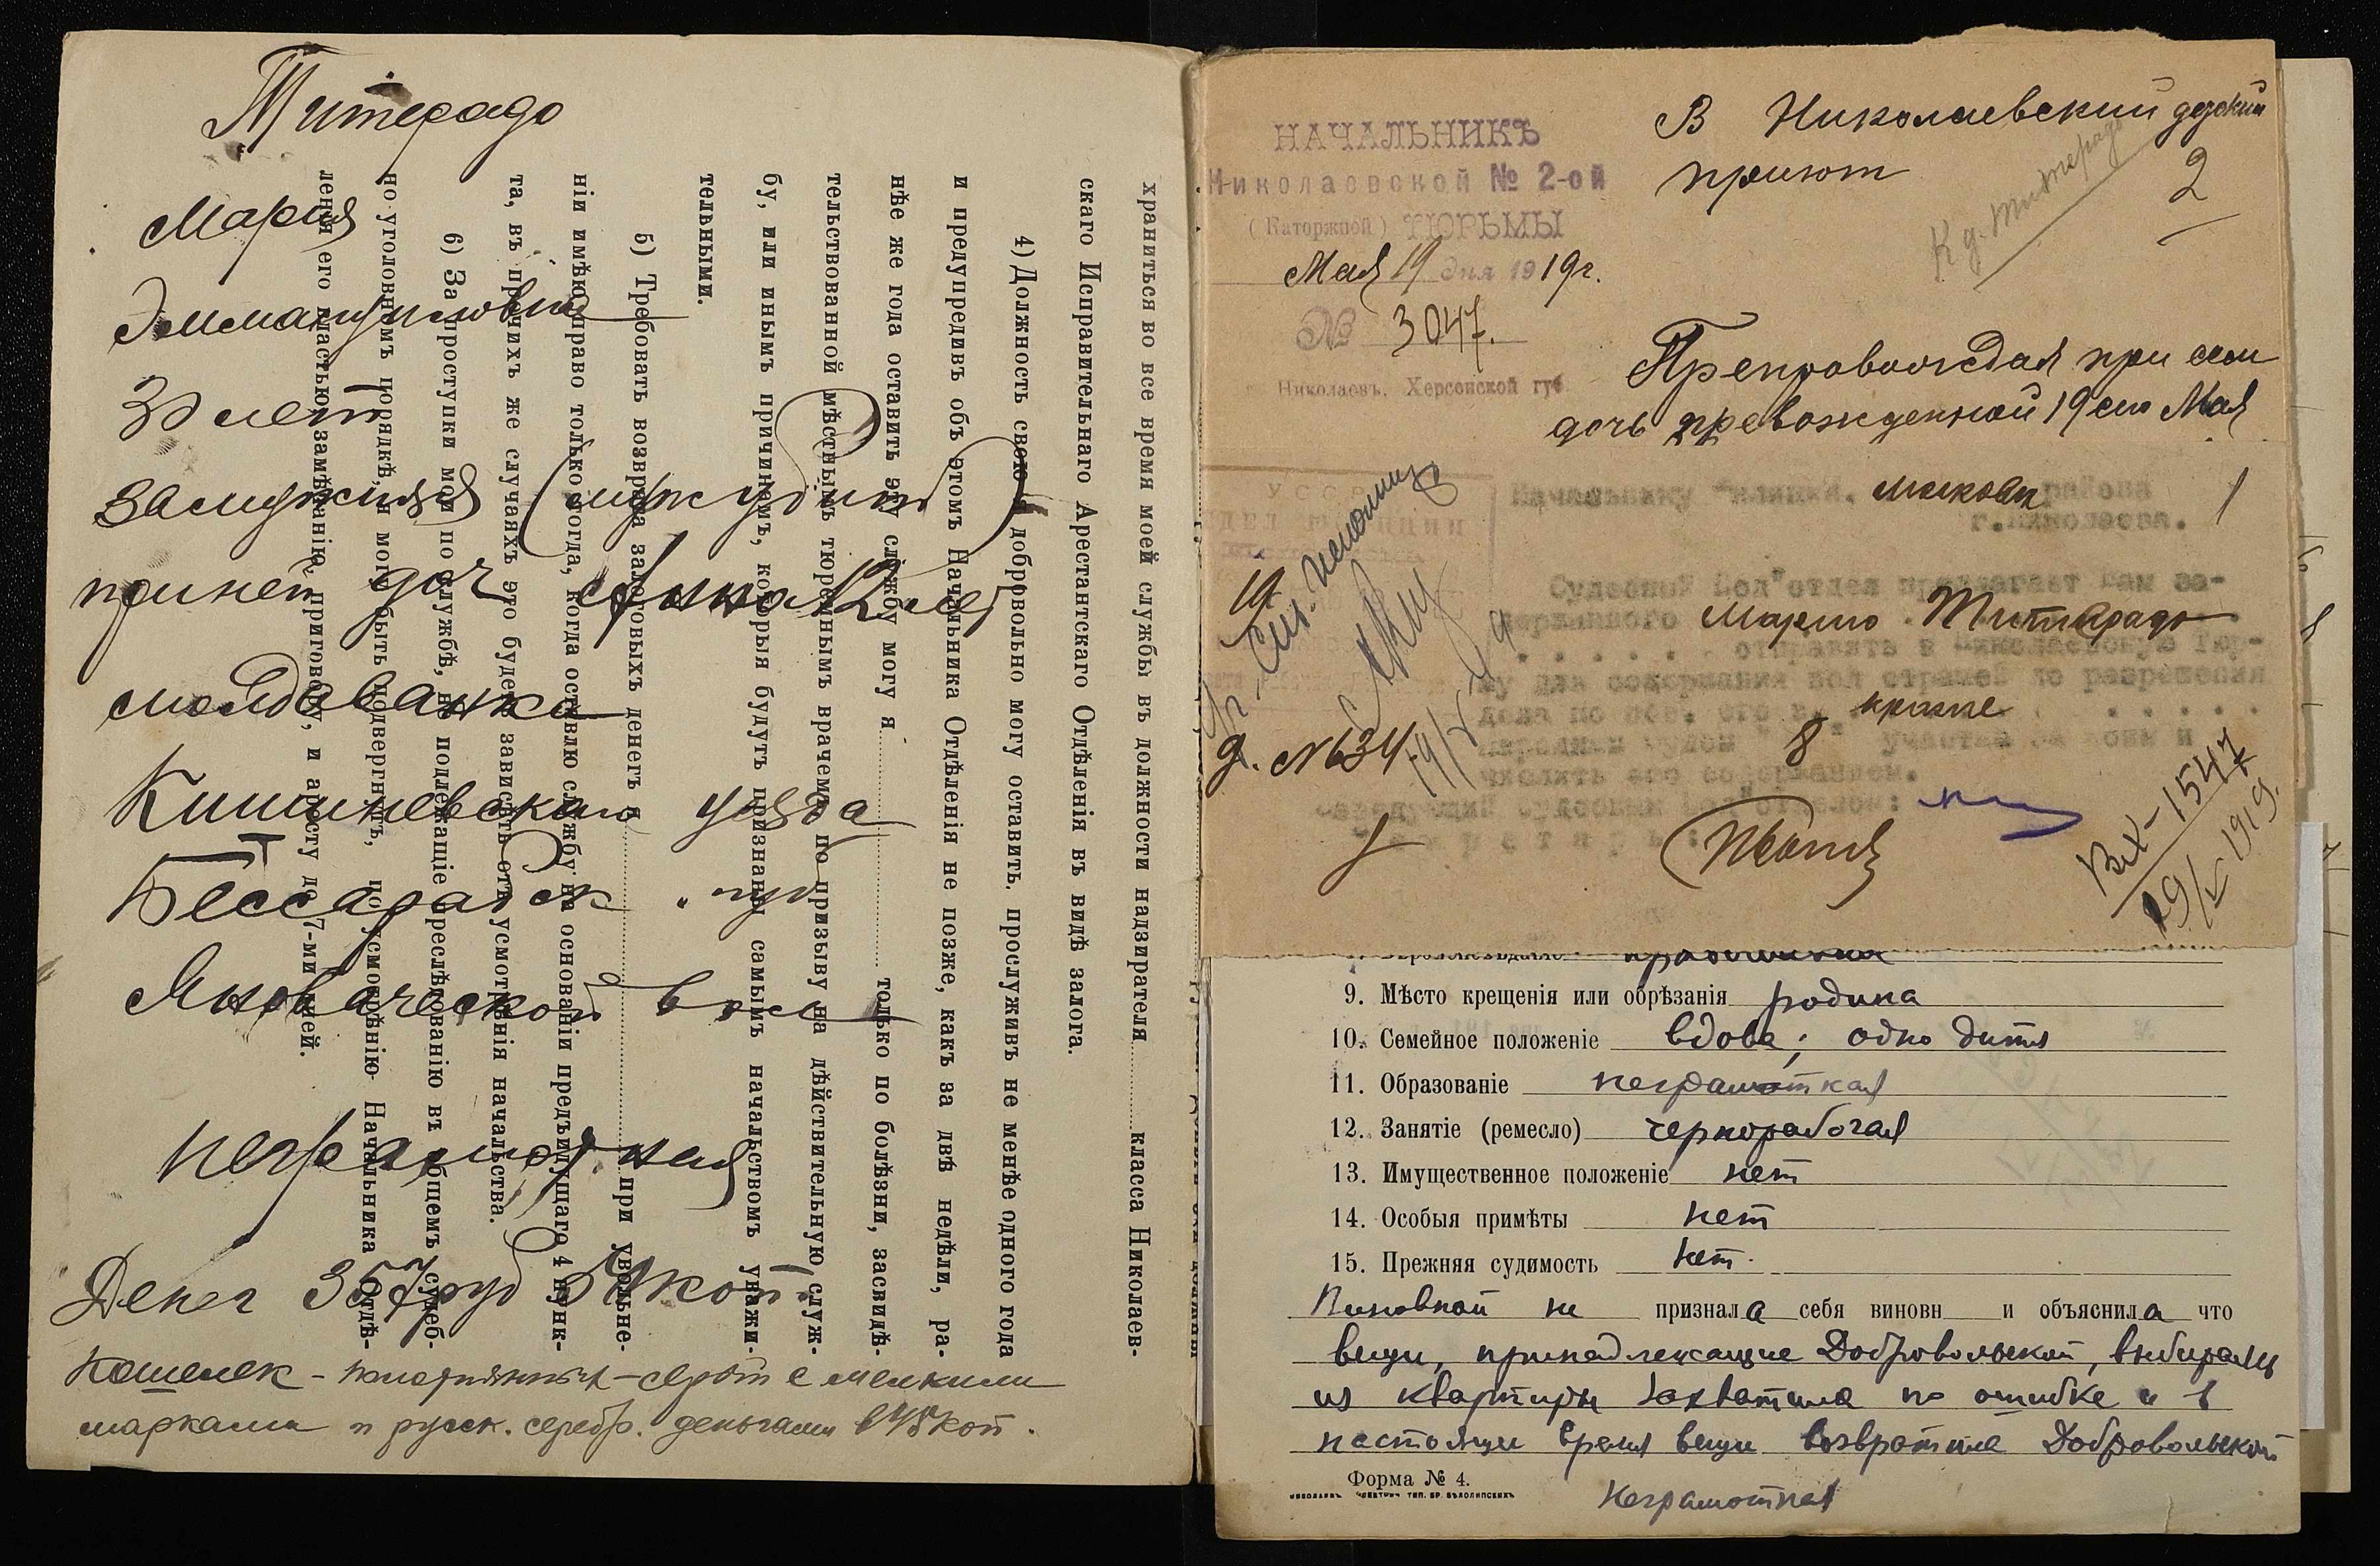 Титерадо
Мария
Эммануиловна
30 лет
замужняя (муж убит)
принет доч Анна 12 лет
молдаванка
Кишиневскаго уезда
Бессарабск. губ
Яновческой вол
неграмотная
Денег 357 руб 50 коп.
Кошелек – серый с мелкими
марками и русск. серебр. деньгами в 45 коп.
храниться во все время моей службы въ должности надзирателя класса Николаев-
скаго Исправительнаго Арестантскаго Отдѣленія въ видѣ залога.
4) Должность свою я добровольно могу оставить, прослуживъ не менѣе одного года
и предупредивъ объ этомъ Начальника Отдѣленія не позже, какъ за двѣ недѣли, ра-
нѣе же года оставить эту службу могу я только по болѣзни, засвидѣ-
тельствованной мѣстнымъ тюремнымъ врачемъ, по призыву на дѣйствительную служ-
бу, или инымъ причинамъ, которыя будутъ признаны самымъ начальствомъ уважи-
тельными.
5) Требовать возврата залоговыхъ денегъ я при увольне-
ніи имѣю право только тогда, когда оставлю службу на основаніи предъидущаго 4 пунк-
та, въ прочихъ же случаяхъ это будетъ зависѣть отъ усмотрѣнія начальства.
6) За проступки мои по службѣ, не подлежащіе преслѣдованію въ общемъ судеб-
но уголовномъ порядкѣ, я могу быть подвергнутъ, по усмотрѣнію Начальника Отдѣ-
ленія его властью, замѣчанію, приговору, и аресту до 7-ми дней.
НАЧАЛЬНИКЪ
Николаевской № 2-ой
(Каторжной) ТЮРЬМЫ
Мая 19 дня 1919 г.
№ 3047.
Николаевъ, Херсонской губ.
В Николаевский детский
приют
К д. Титерадо
2
Препровождая при сем
дочь препровожденной 19 сего Мая
Начальнику милиции, московск района
г. Николаева.
1
Судебный Под'отдел предлагает Вам за-
держанного Марию Титарадо
отправить в Николаевскую Тюрь-
му для содержания под стражей до разрешения
дела по обв. его в краже
народным судом 8 участка за коим и
числить его содержанием.
Заведующий Судебным Под'отделом:
Секретарь:
д. № 634
19/V 19
Вх – 1547
19/V 1919.
9. Мѣсто крещенія или обрѣзанія родина
10. Семейное положеніе вдова; одно дитя
11. Образованіе неграмоткая
12. Занятіе (ремесло) чернорабочая
13. Имущественное положеніе нет
14. Особыя примѣты нет
15. Прежняя судимость нет.
Виновной не признала себя виновн и объяснила что
вещи, принадлежащие Добровольской, выбираясь
из квартиры захватила по ошибке и в
настоящее время вещи возвратила Добровольской
Форма № 4.
Неграмотная